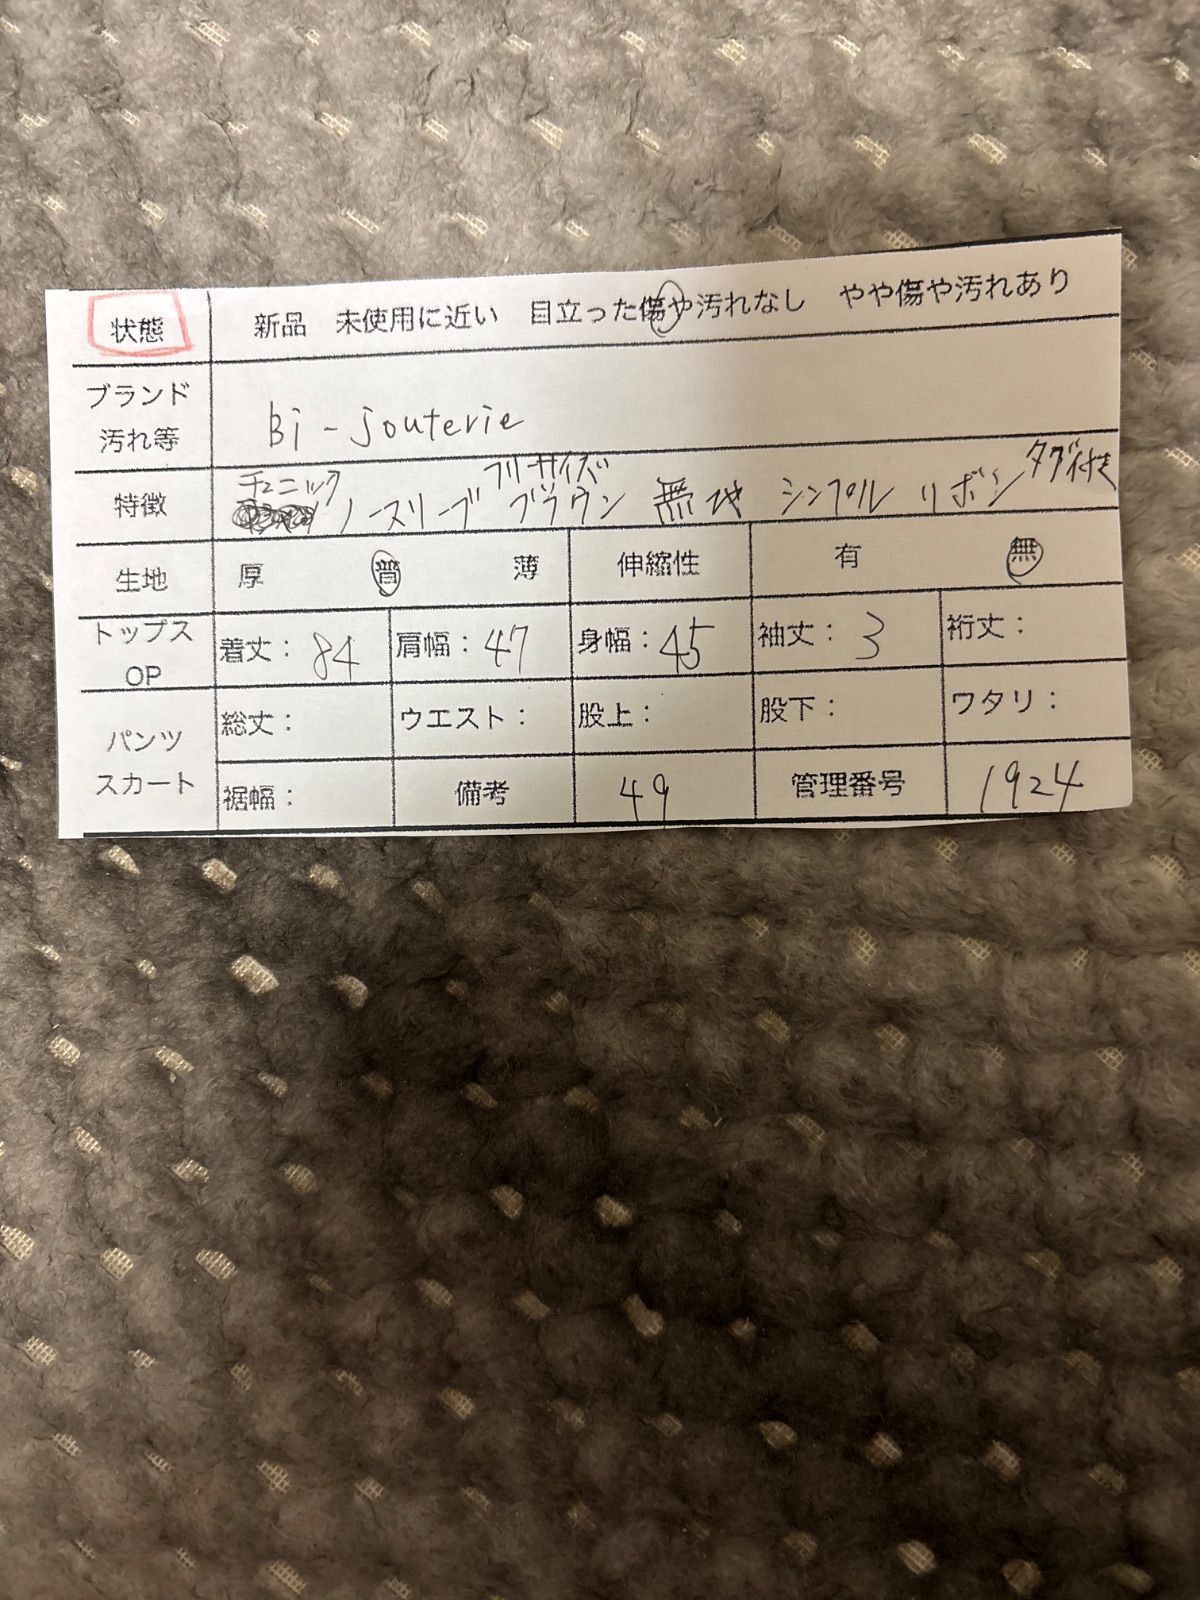 状態 新品 未使用に近い 目立った傷や汚れなし やや傷や汚れあり
ブランド
汚れ等 Bi - jouterie
チュニック フリーサイズ タグ付き
特徴 ノースリーブ ブラウン 無地 シンプル リボン
生地 厚 普 薄 伸縮性 有 無
トップス
OP 着丈: 84 肩幅: 47 身幅: 45 袖丈: 3 裄丈:
パンツ
スカート 総丈: ウエスト: 股上: 股下: ワタリ:
裾幅: 備考 49 管理番号 1924